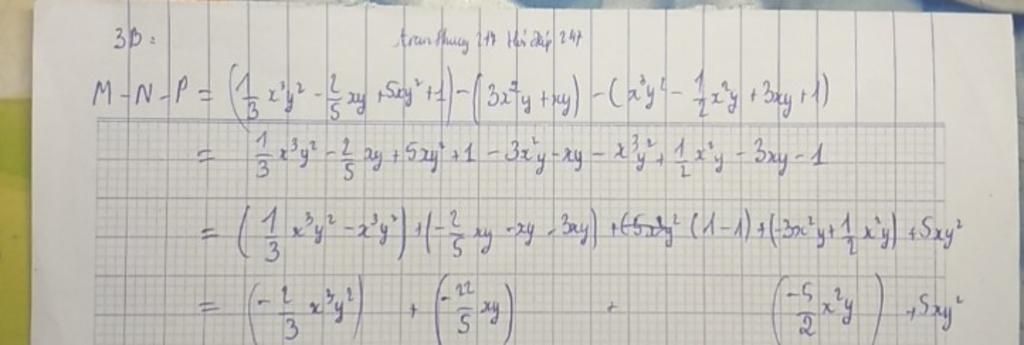 3B:
M - N - P = (1/3 x³y² - 2/5 xy + 5xy² + 1) - (3x²y + xy) - (x³y² - 1/2 x²y + 3xy + 1)
= 1/3 x³y² - 2/5 xy + 5xy² + 1 - 3x²y - xy - x³y² + 1/2 x²y - 3xy - 1
= (1/3 x³y² - x³y²) + (-2/5 xy - xy - 3xy) + (1-1) + (-3x²y + 1/2 x²y) + 5xy²
= (-2/3 x³y²) + (-22/5 xy) + (-5/2 x²y) + 5xy²